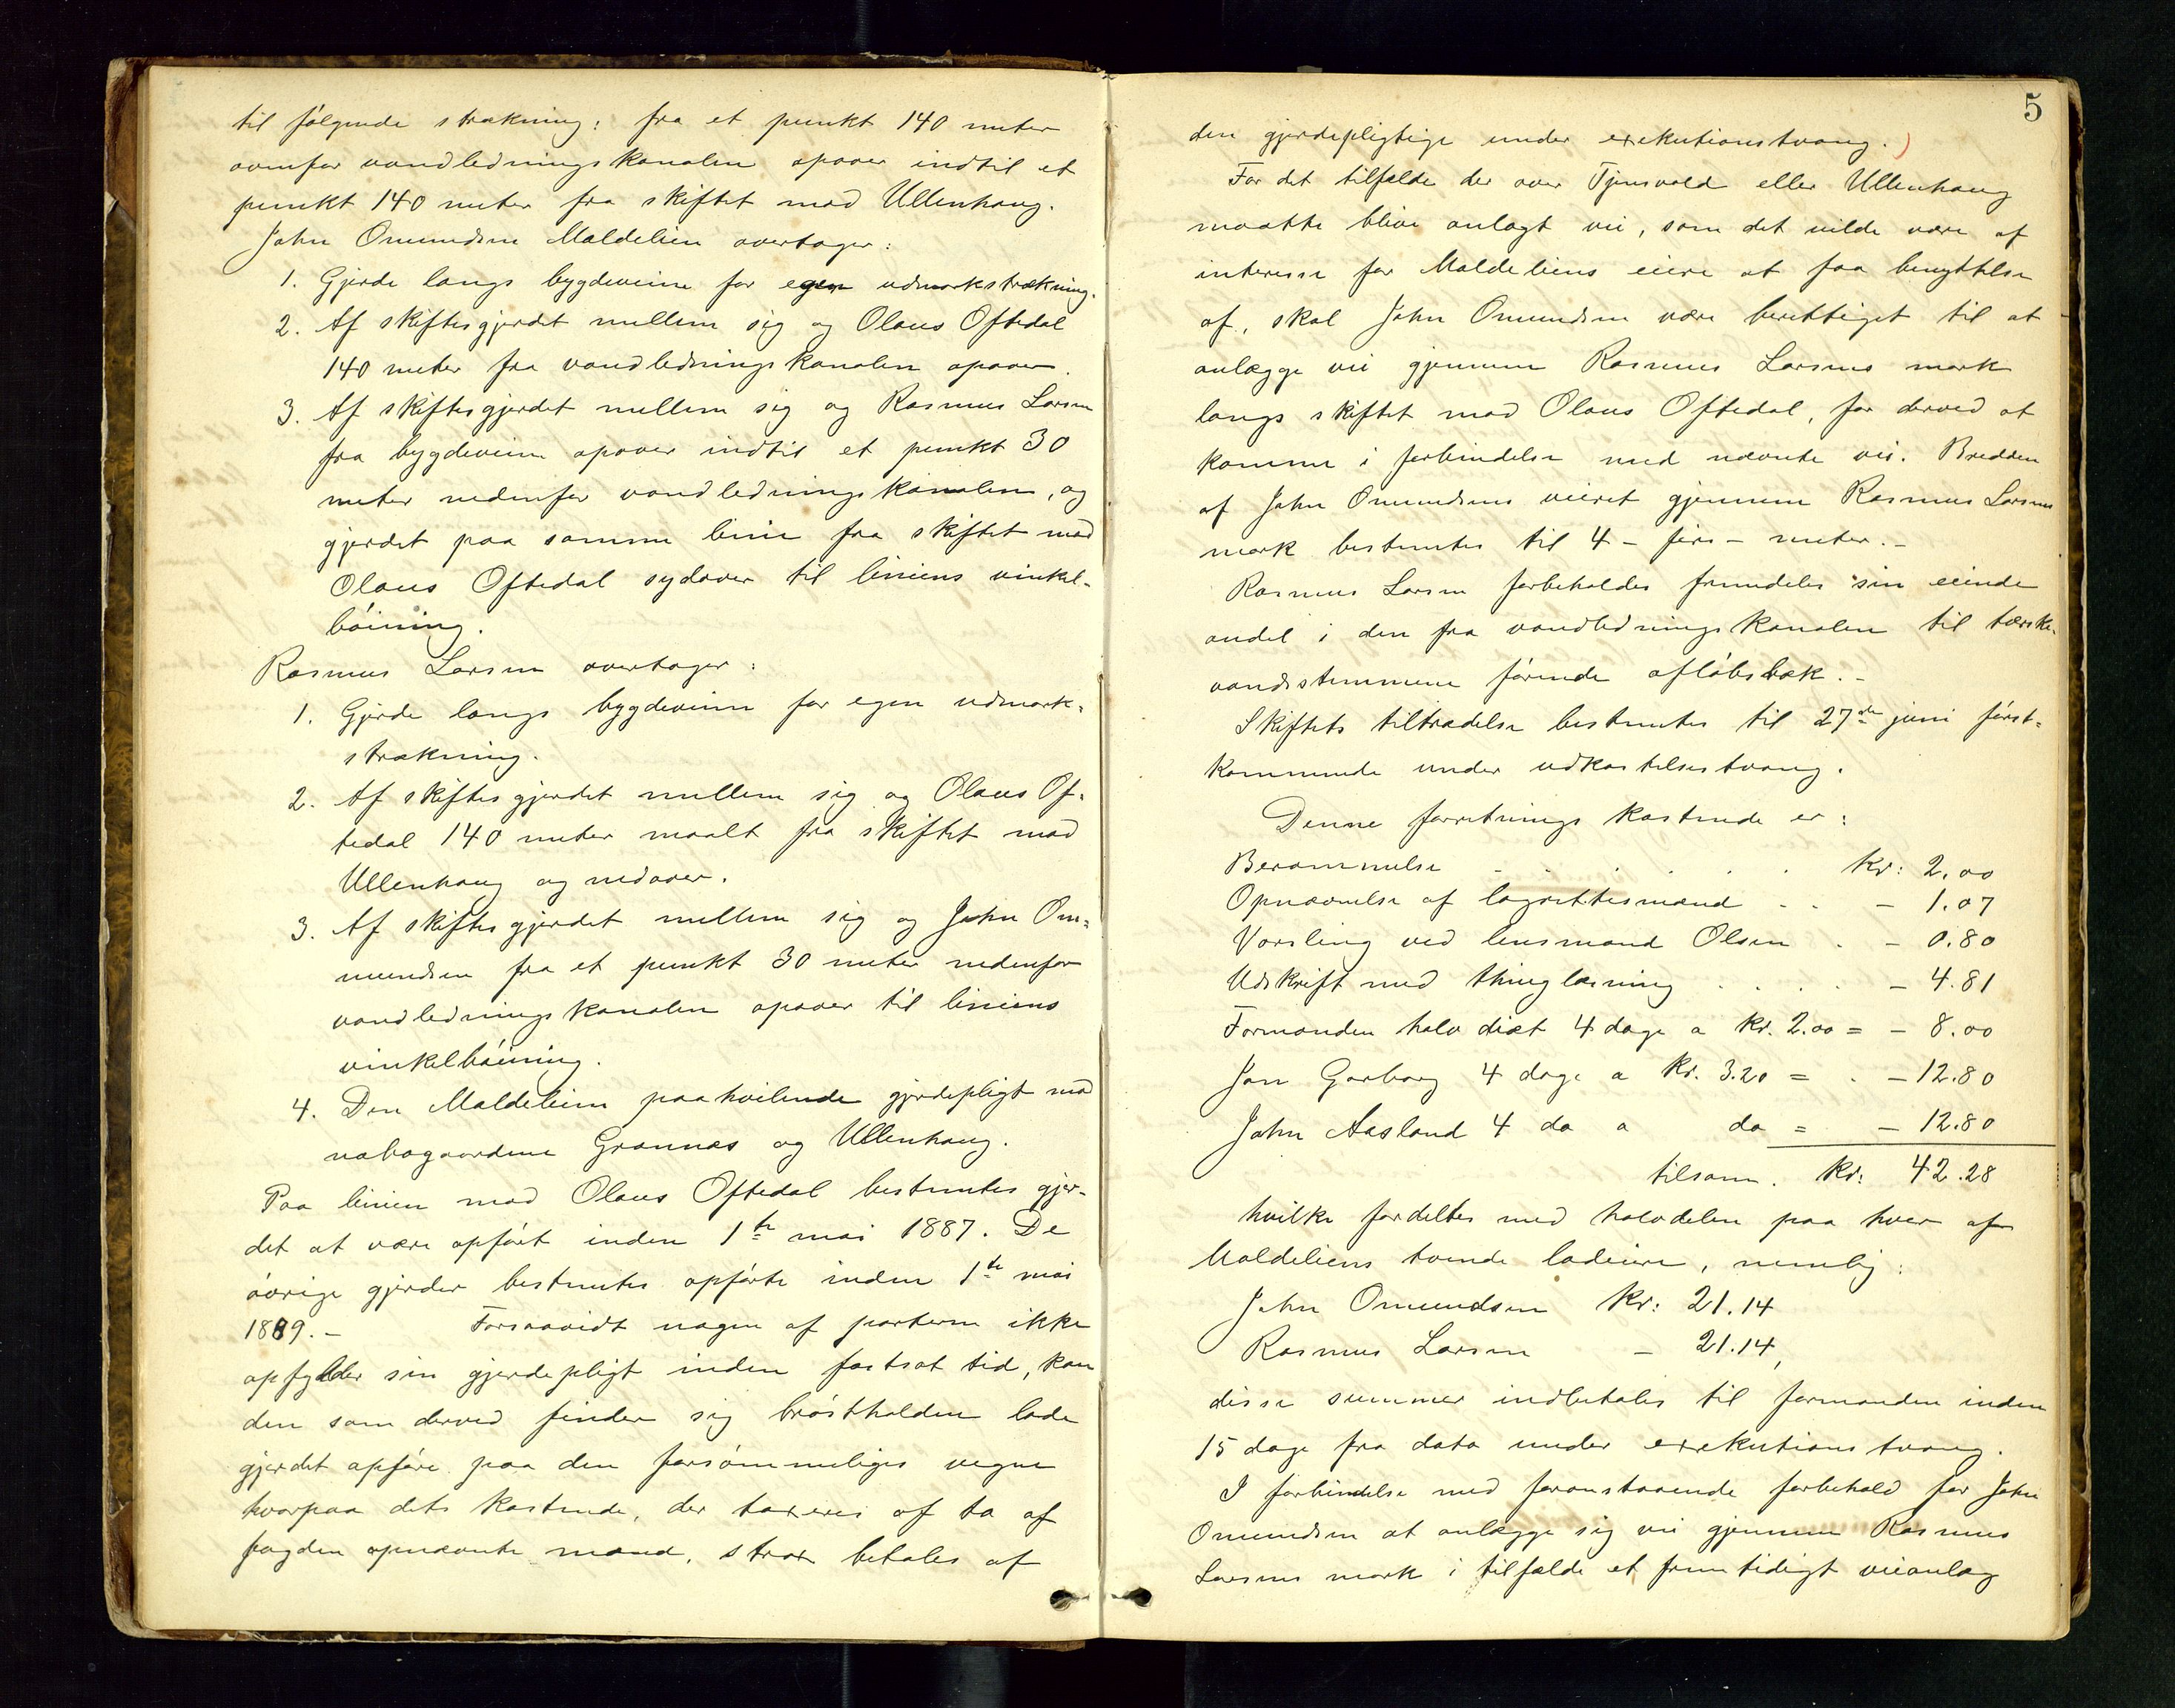 til følgende strækning: fra et punkt 140 meter
ovenfor vandledningskanalen opover indtil et
punkt 140 meter fra skiftet mod Ullenhaug.
John Omundsen Maldelien overtager:
1. Gjerde langs bygdeveien for egen udmarkstrækning.
2. Af skiftesgjerdet mellem sig og Olaus Oftedal
140 meter fra vandledningskanalen opover.
3. Af skiftesgjerdet mellem sig og Rasmus Larsen
fra bygdeveien opover indtil et punkt 30
meter nedenfor vandledningskanalen, og
gjerdet paa samme linie fra skiftet mod
Olaus Oftedal sydover til liniens vinkel-
bøining.
Rasmus Larsen overtager:
1. Gjerde langs bygdeveien for egen udmark-
strækning.
2. Af skiftesgjerdet mellem sig og Olaus Of-
tedal 140 meter maalt fra skiftet mod
Ullenhaug og nedover.
3. Af skiftesgjerdet mellem sig og John Om-
mundsen fra et punkt 30 meter nedenfor
vandledningskanalen opover til liniens
vinkelbøining.
4. Den Maldelien paahvilende gjerdepligt mod
nabogaardene Grannæs og Ullenhaug.
Paa linien mod Olaus Oftedal bestemtes gjer-
det at være opført inden 1te mai 1887. De
øvrige gjerder bestemtes opførte inden 1te mai
1889.- Forsaavidt nogen af parterne ikke
opfylder sin gjerdepligt inden fastsat tid, kan
den som derved finder sig brøstholden lade
gjerdet opføre paa den forsømmeliges vegne
hvorpaa dets kostende, der taxeres af to af
fogden opnævnte mænd, strax betales af
5
den gjerdepligtige under exekutionstvang.)
For det tilfælde der over Tjensvold eller Ullenhaug
maatte blive anlagt vei, som det vilde være af
interesse for Maldeliens eiere at faa benyttelse
af, skal John Omundsen være berettiget til at
anlægge vei gjennem Rasmus Larsens mark
langs skiftet mod Olaus Oftedal, for derved at
komme i forbindelse med nævnte vei. Bredden
af John Omundsens veiret gjennem Rasmus Larsens
mark bestemtes til 4 - fire - meter.-
Rasmus Larsen forbeholdes fremdeles sin eiende
andel i den fra vandledningskanalen til tærske-
vandsstemmene førende afløbsbæk.-
Skiftets tiltrædelse bestemtes til 27de juni først-
kommende under udkastelsestvang.
Denne forretnings kostende er:
Berammelse . . . . kr: 2.00
Opnævnelse af lagrettesmænd . . - 1.07
Varsling ved lensmand Olsen . - 0.80
Udskrift med thinglæsning . . . . - 4.81
Formanden halv diæt 4 dage a kr. 2.00 = - 8.00
Jan Garborg 4 dage a kr. 3.20 = . - 12.80
John Aasland 4 do a do = - 12.80
tilsam. kr: 42.28
hvilke fordeltes med halvdelen paa hver af
Maldeliens tvende lodeiere, nemlig:
John Omundsen kr: 21.14
Rasmus Larsen - 21.14,
disse summer indbetales til formanden inden
15 dage fra dato under exekutionstvang.
I forbindelse med foranstaaende forbehold for John
Omundsen at anlægge sig vei gjennem Rasmus
Larsens mark i tilfælde et fremtidigt veianlæg